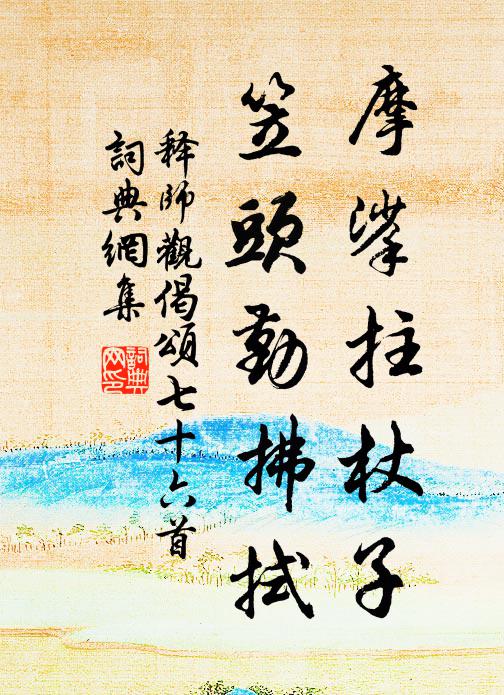 摩挲拄杖子
笠頭勤拂拭
释師觀偈頌七十六首
詞典網集
詞典网印